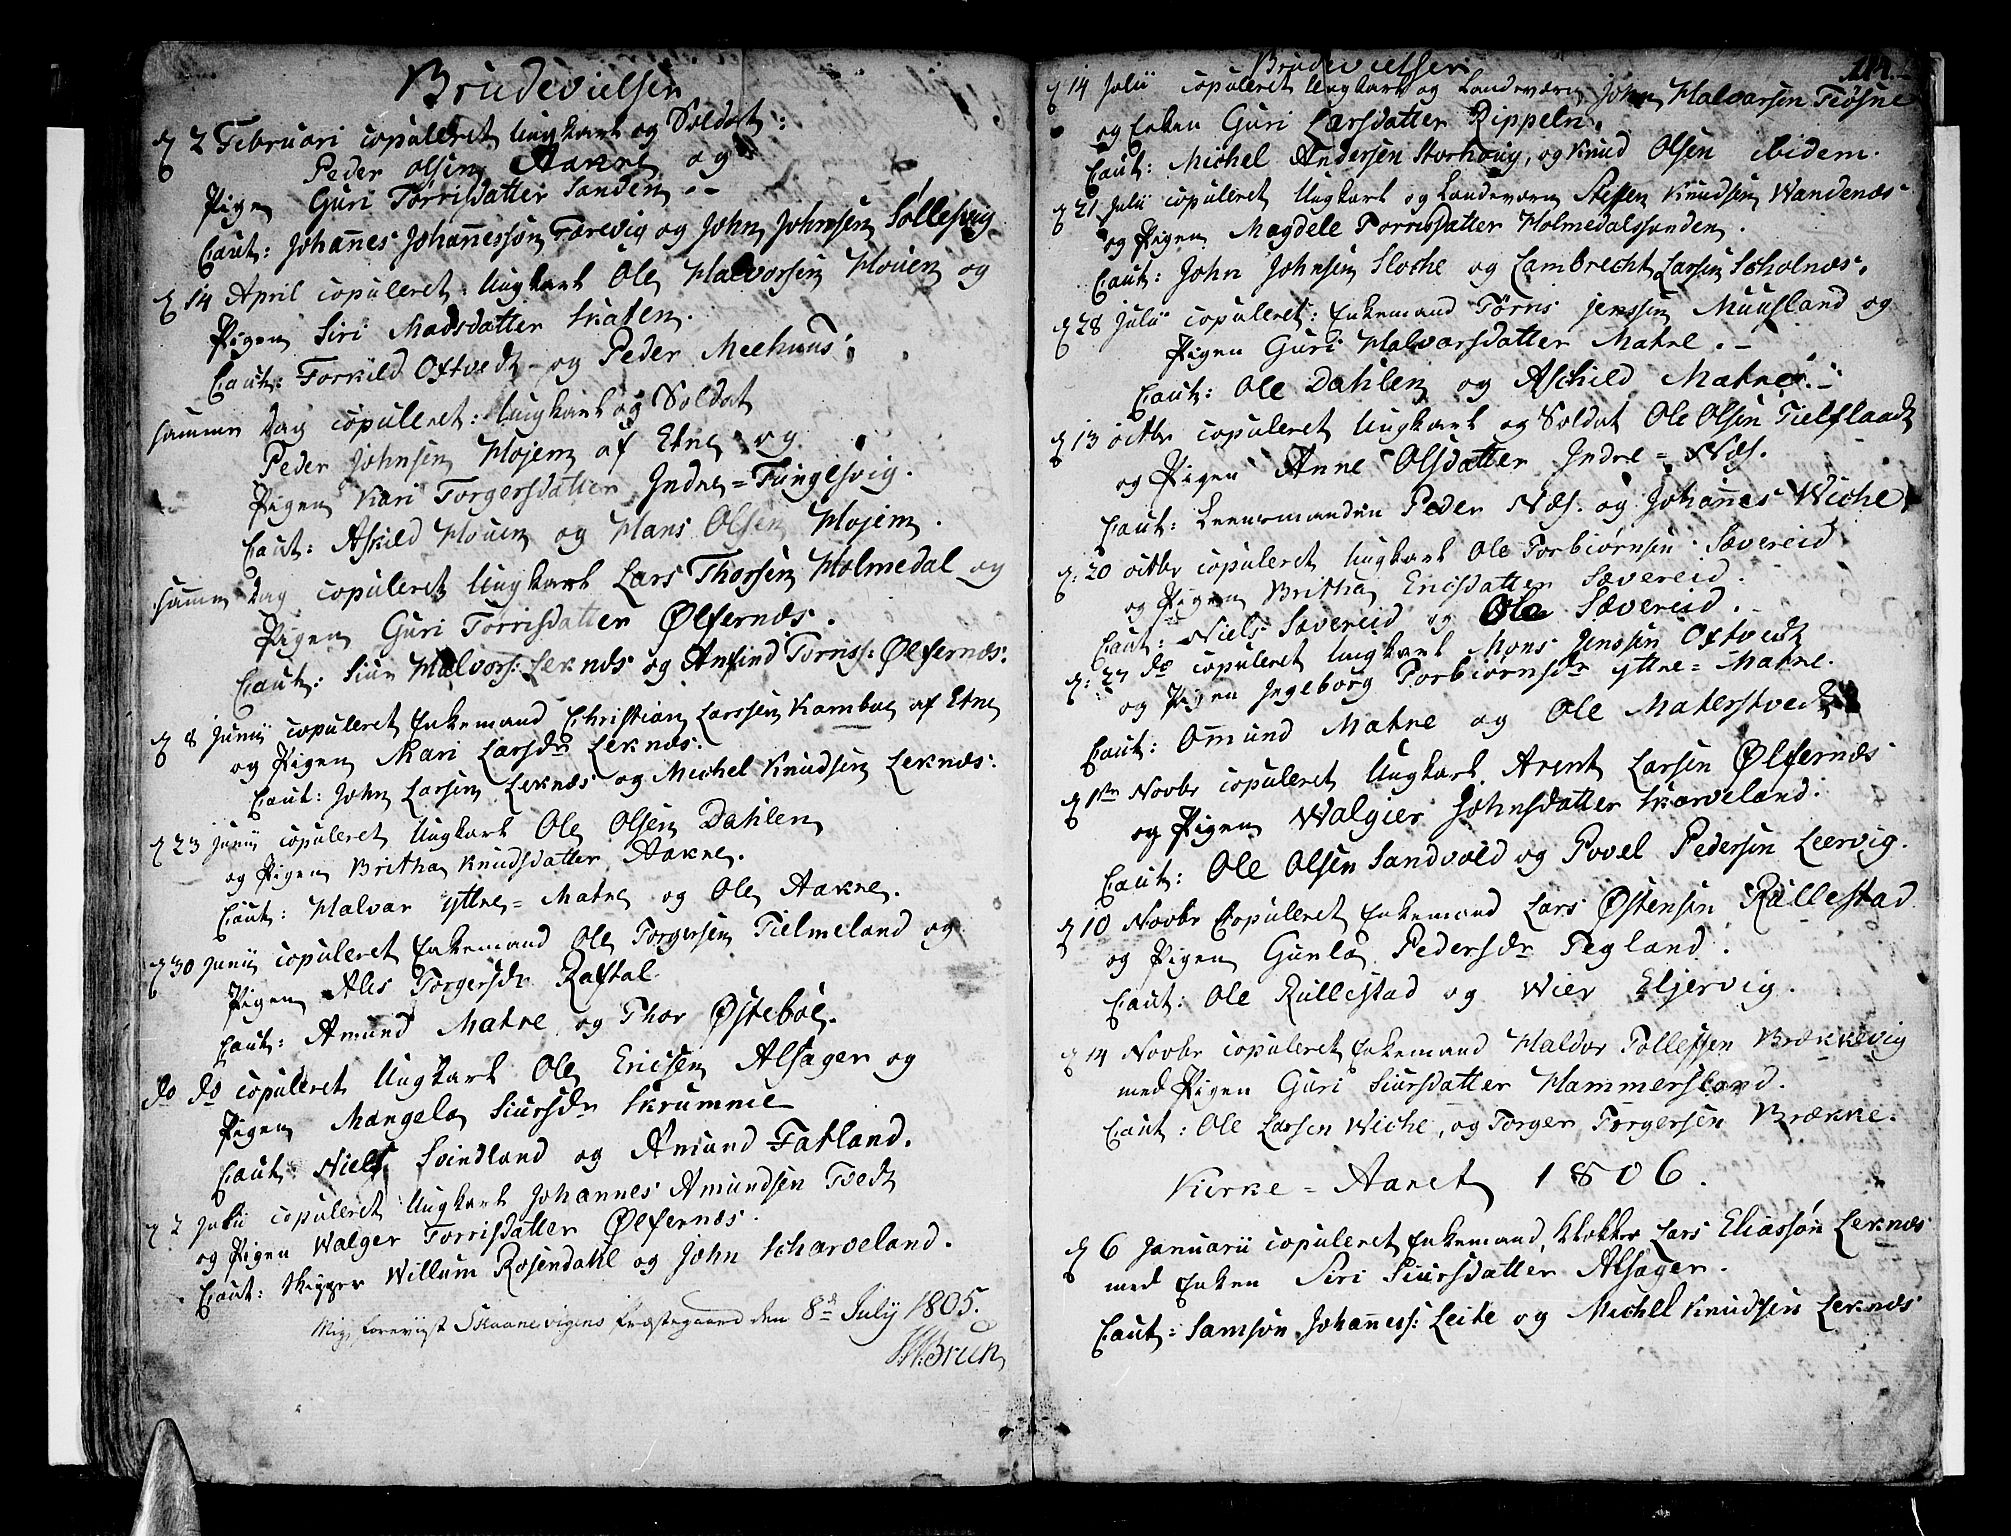 Brudevielser
d 2 Februari copuleret Ungkarl og Soldat:
Peder Olsen Aakre og
Pigen Guri Torrisdatter Sanden.
Caut: Johannes Johannesson Færevig og John Johnsen Sollesvig
d 14 April copuleret Ungkarl Ole Halvorsen Houen og
Pigen Siri Madsdatter Skaten.
Caut: Torkild Oftvedt og Peder Meehuus;
samme Dag copuleret: Ungkarl og Soldat
Peder Johnsen Hojem af Etne og
Pigen Kari Torgersdatter Indre=Tungesvig.
Caut: Askild Houen og Hans Olsen Hojem.
samme Dag copuleret Ungkarl Lars Thorsen Holmedal og
Pigen Guri Torrisdatter Ølfernæs.
Caut: Siur Halvors: Leknæs og Anfind Torriss: Ølfernæs.
d 8 Junii copuleret Enkemand Christian Larssen Kamboe af Etne
og Pigen Kari Larsdr Leknæs.
Caut: John Larsen Leknæs og Michel Knudsen Leknæs.
d 23 Junii copuleret Ungkarl Ole Olsen Dahlen
og Pigen Britha Knudsdatter Aakre.
Caut: Halvar Yttre=Matre og Ole Aakre.
d 30 Junii copuleret Enkemand Ole Torgersen Tielmeland og
Pigen Ales Torgersdr Rafdal.
Caut: Amund Matre og Thor Østeboe.
do do copuleret Ungkarl Ole Ericsen Alsager og
Pigen Mangela Siursdr Skrumme
Caut: Niels Svindland og Amund Fatland.
d 7 Julii copuleret Ungkarl Johannes Amundsen Tvedt
og Pigen Walger Torrisdatter Ølfernæs.
Caut: Skipper Willum Rosendahl og John Scharveland.
Mig foreviist Skaanevigens Præstegaard den 8de July 1805.
Brun
Brudevielser
114.
d 14 Julii copuleret Ungkarl og Landeværn John Halvarsen Tiøsne
og Enken Guri Larsdatter Rippeln.
Caut: Michel Andersen Storhoug, og Knud Olsen ibidem.
d 21 Julii copuleret Ungkarl og Landeværn Steffen Knudsen Wandenæs
og Pigen Magdele Torrisdatter Holmedalssanden.
Caut: John Johnsen Sloche og Lambrecht Larsen Scholnæs.
d 28 Julii copuleret: Enkemand Tørris Jenssen Muusland og
Pigen Guri Halvarsdatter Matre.
Caut: Ole Dahlen og Aschild Matre.
d 13 octbr copuleret Ungkarl og Soldat Ole Olsen Tielflaadt
og Pigen Anne Olsdatter Indre=Næs.
Caut: Leensmanden Peder Næs. og Johannes Wiche
d: 20 octbr copuleret Ungkarl Ole Torbiørnsen Sævereid
og Pigen Britha Ericsdatter Sævereid.
Caut: Niels Sævereid og Ole Sævereid.
d: 27 do copuleret Ungkarl Mons Jenssen Oftvedt
og Pigen Ingeborg Torbiørnsdr Yttre=Matre.
Caut: Omund Matre og Ole Materstvedt
d 1ste Novbr copuleret Ungkarl Arent Larsen Ølfernæs
og Pigen Walgier Johnsdatter Skarveland.
Caut: Ole Olsen Sandvold og Povel Pedersen Leervig.
d 10 Novbr Copuleret Enkemand Lars Østensen Rullestad
og Pigen Gunla Pedersdr Tegland.
Caut: Ole Rullestad og Wier Eljervig.
d 14 Novbr copuleret Enkemand Haldor Tollefsen Brækkevig
med Pigen Guri Siursdatter Hammersland.
Caut: Ole Larsen Wiche, og Torger Torgersen Brække.
Kierke=Aaret 1806.
d 6 Januarii copuleret Enkemand, Klokker Lars Eliassøn Leknæs
med Enken Siri Siursdatter Alsager.
Caut: Samson Johanness: Leite og Michel Knudsen Leknæs